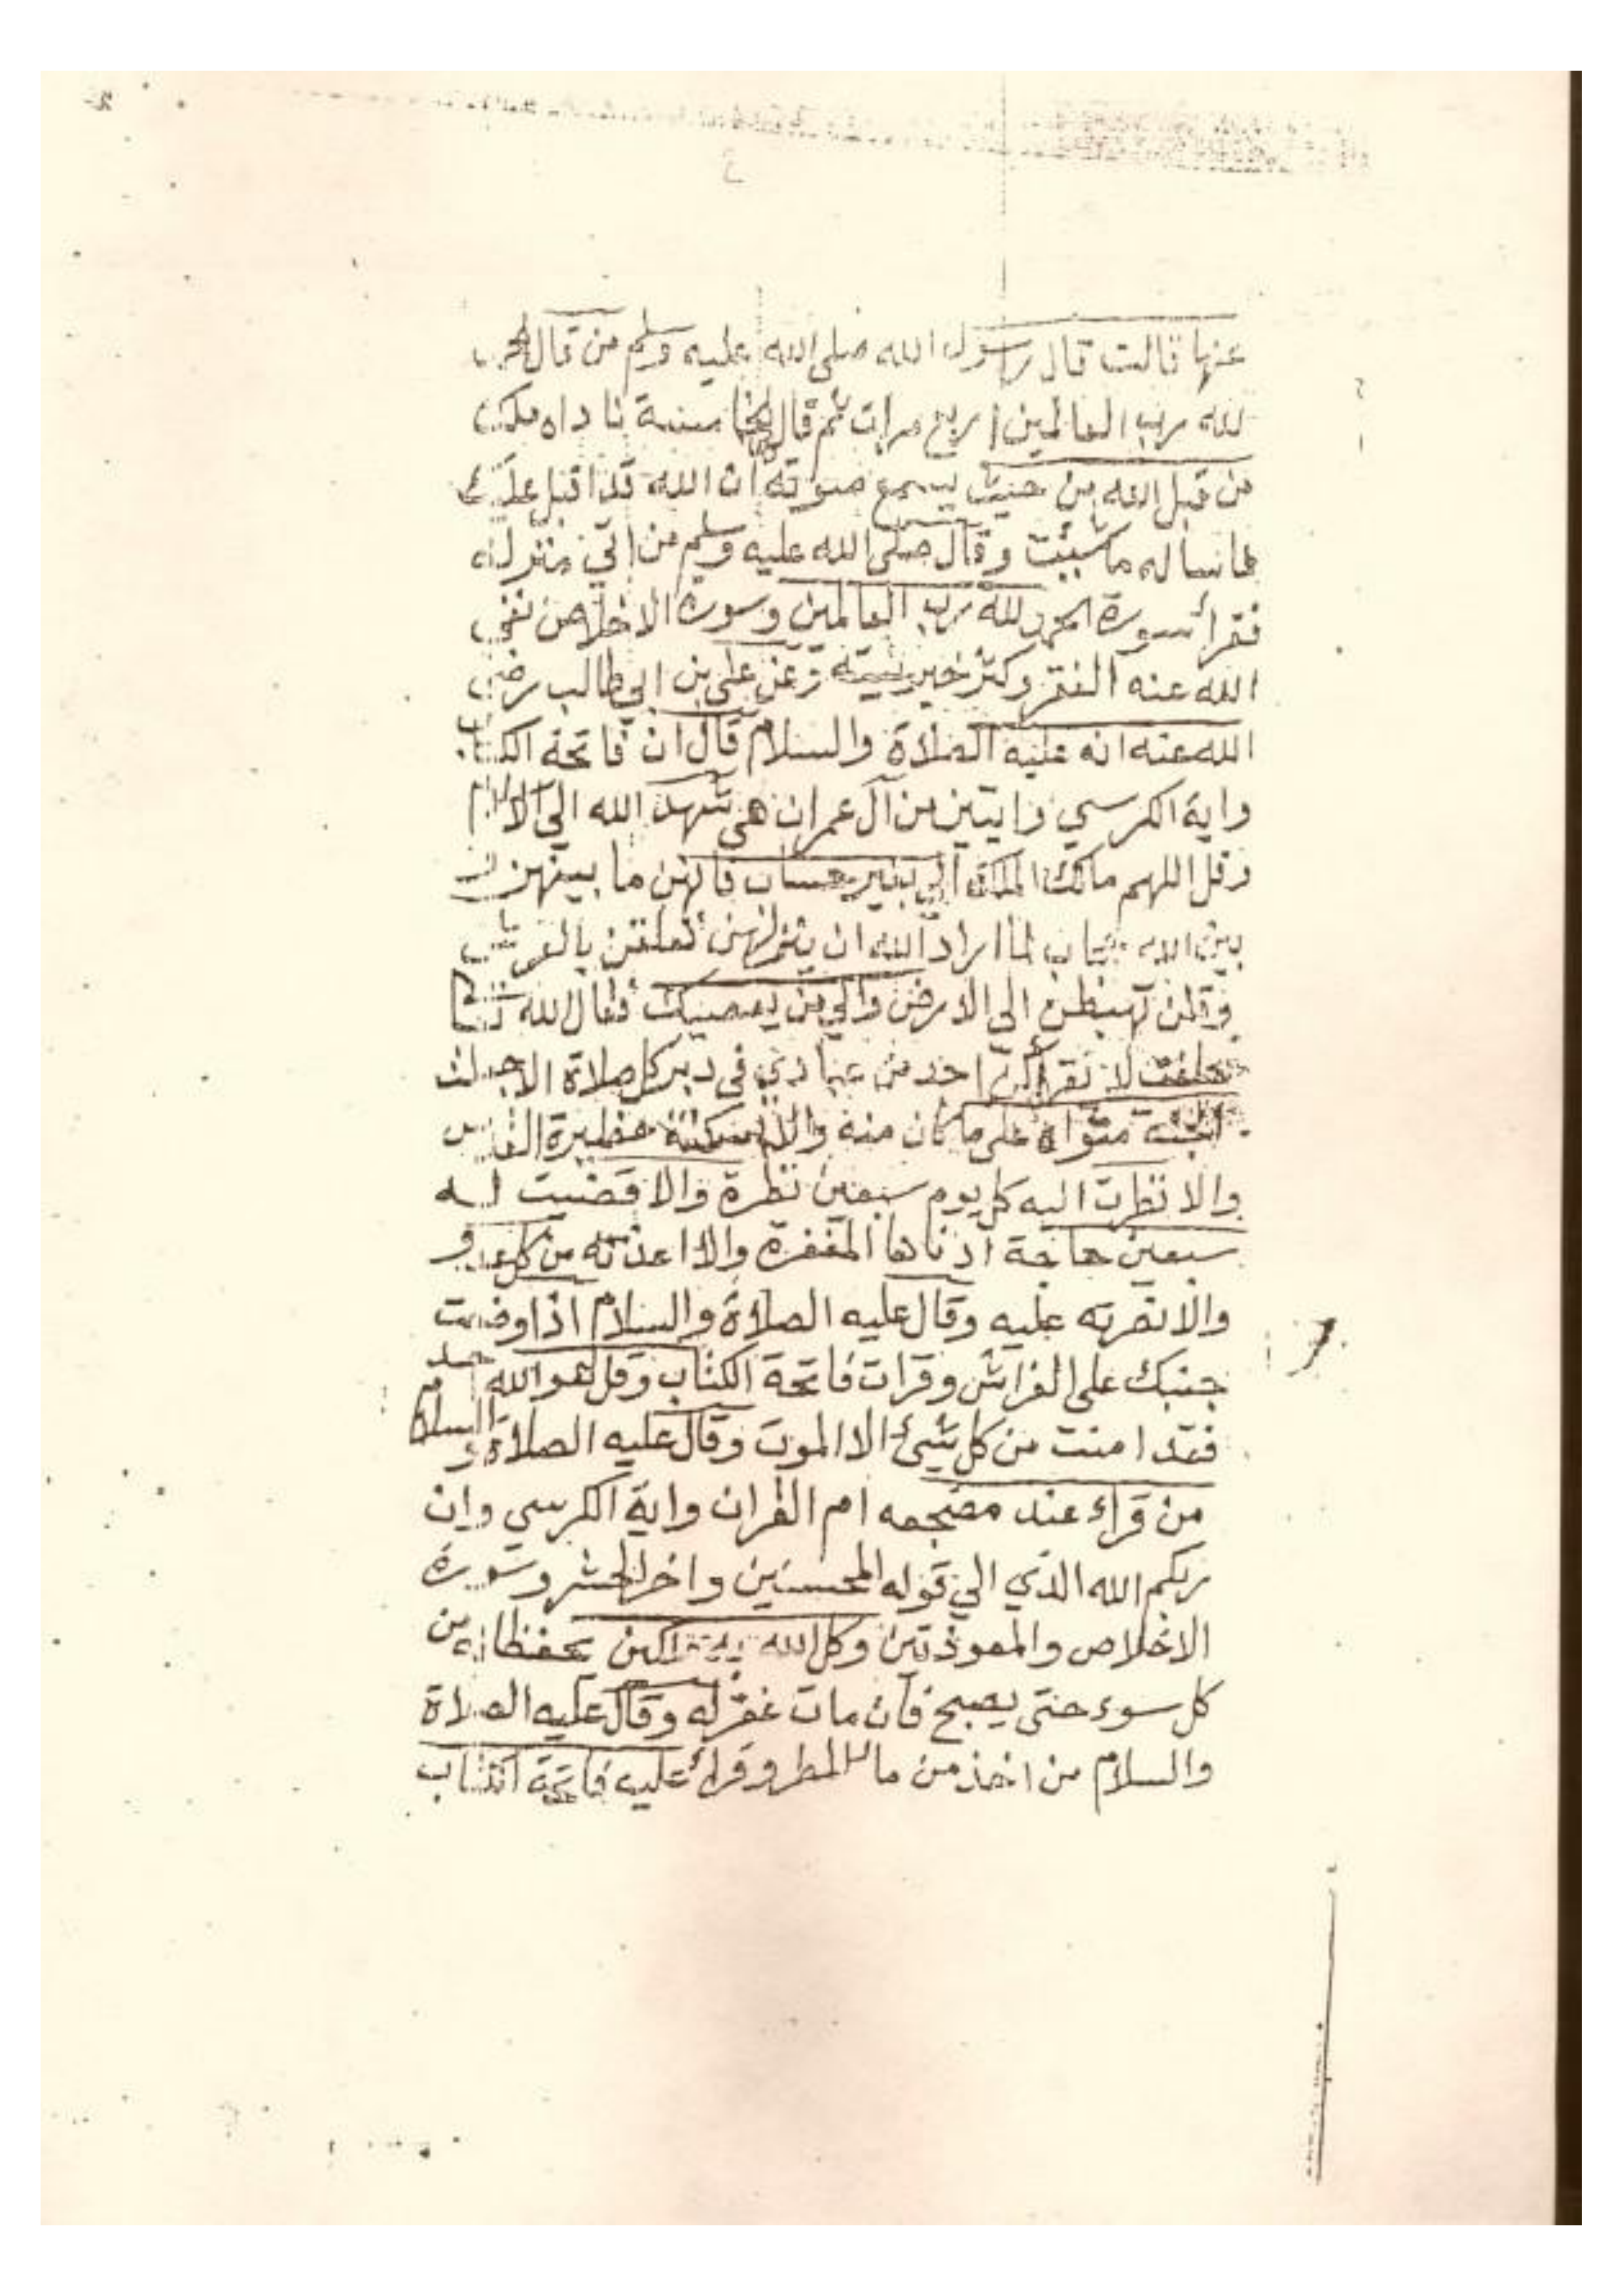 عنها قالت قال رسول الله صلى الله عليه وسلم من قال الحمد
لله رب العالمين اربع مرات ثم قال الخامسة ناداه ملك
من قبل الله من حيث يسمع صوته ان الله قد اقبل عليك
فاساله ما شئت وقال صلى الله عليه وسلم من اتي منزله
فقرأ سورة الحمد لله رب العالمين وسورة الاخلاص نفي
الله عنه الفقر وكثر خير بيته وعن علي بن ابي طالب رضي
الله عنه انه عليه الصلاة والسلام قال ان فاتحة الكتاب
واية الكرسي وايتين من آل عمران هي شهد الله الي الاسلام
وقل اللهم مالك الملك الي بغير حساب فانهن ما بينهن
بين الله حجاب لما اراد الله ان ينزلهن تعلقن بالعرش
وقلن تهبطن الى الارض والي من يعصيك فقال الله تعالى
حلفت لا تقرأكن احد من عبادي في دبر كل صلاة الا جعلت
الجنة مثواه على ما كان منه والا اسكنته حظيرة القدس
والا نظرت اليه كل يوم سبعين نظرة والا قضيت له
سبعين حاجة ادناها المغفرة والا اعذته من كل عدو
والا نصرته عليه وقال عليه الصلاة والسلام اذا وضعت
جنبك على الفراش وقرات فاتحة الكتاب وقل هو الله احد
فقد امنت من كل شيئ الا الموت وقال عليه الصلاة والسلام
من قراء عند مضجعه ام القران واية الكرسي وان
ربكم الله الذي الي قوله المحسنين واخر الحشر وسورة
الاخلاص والمعوذتين وكل الله به ملكين يحفظانه من
كل سوء حتى يصبح فان مات غفر له وقال عليه الصلاة
والسلام من اخذ من ماء المطر وقرأ عليه فاتحة الكتاب